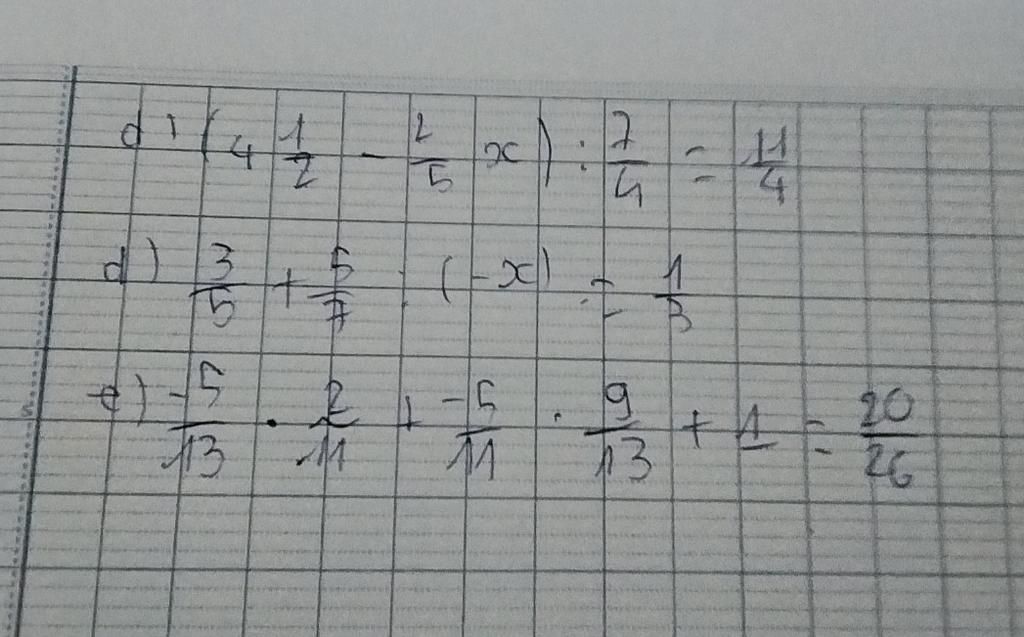 d) (4 1/2 - 2/5 x) : 7/4 = 11/4
d) 3/5 + 5/7 : (-x) = 1/3
e) -5/13 . 2/11 + -5/11 . 9/13 + 1 = 20/26